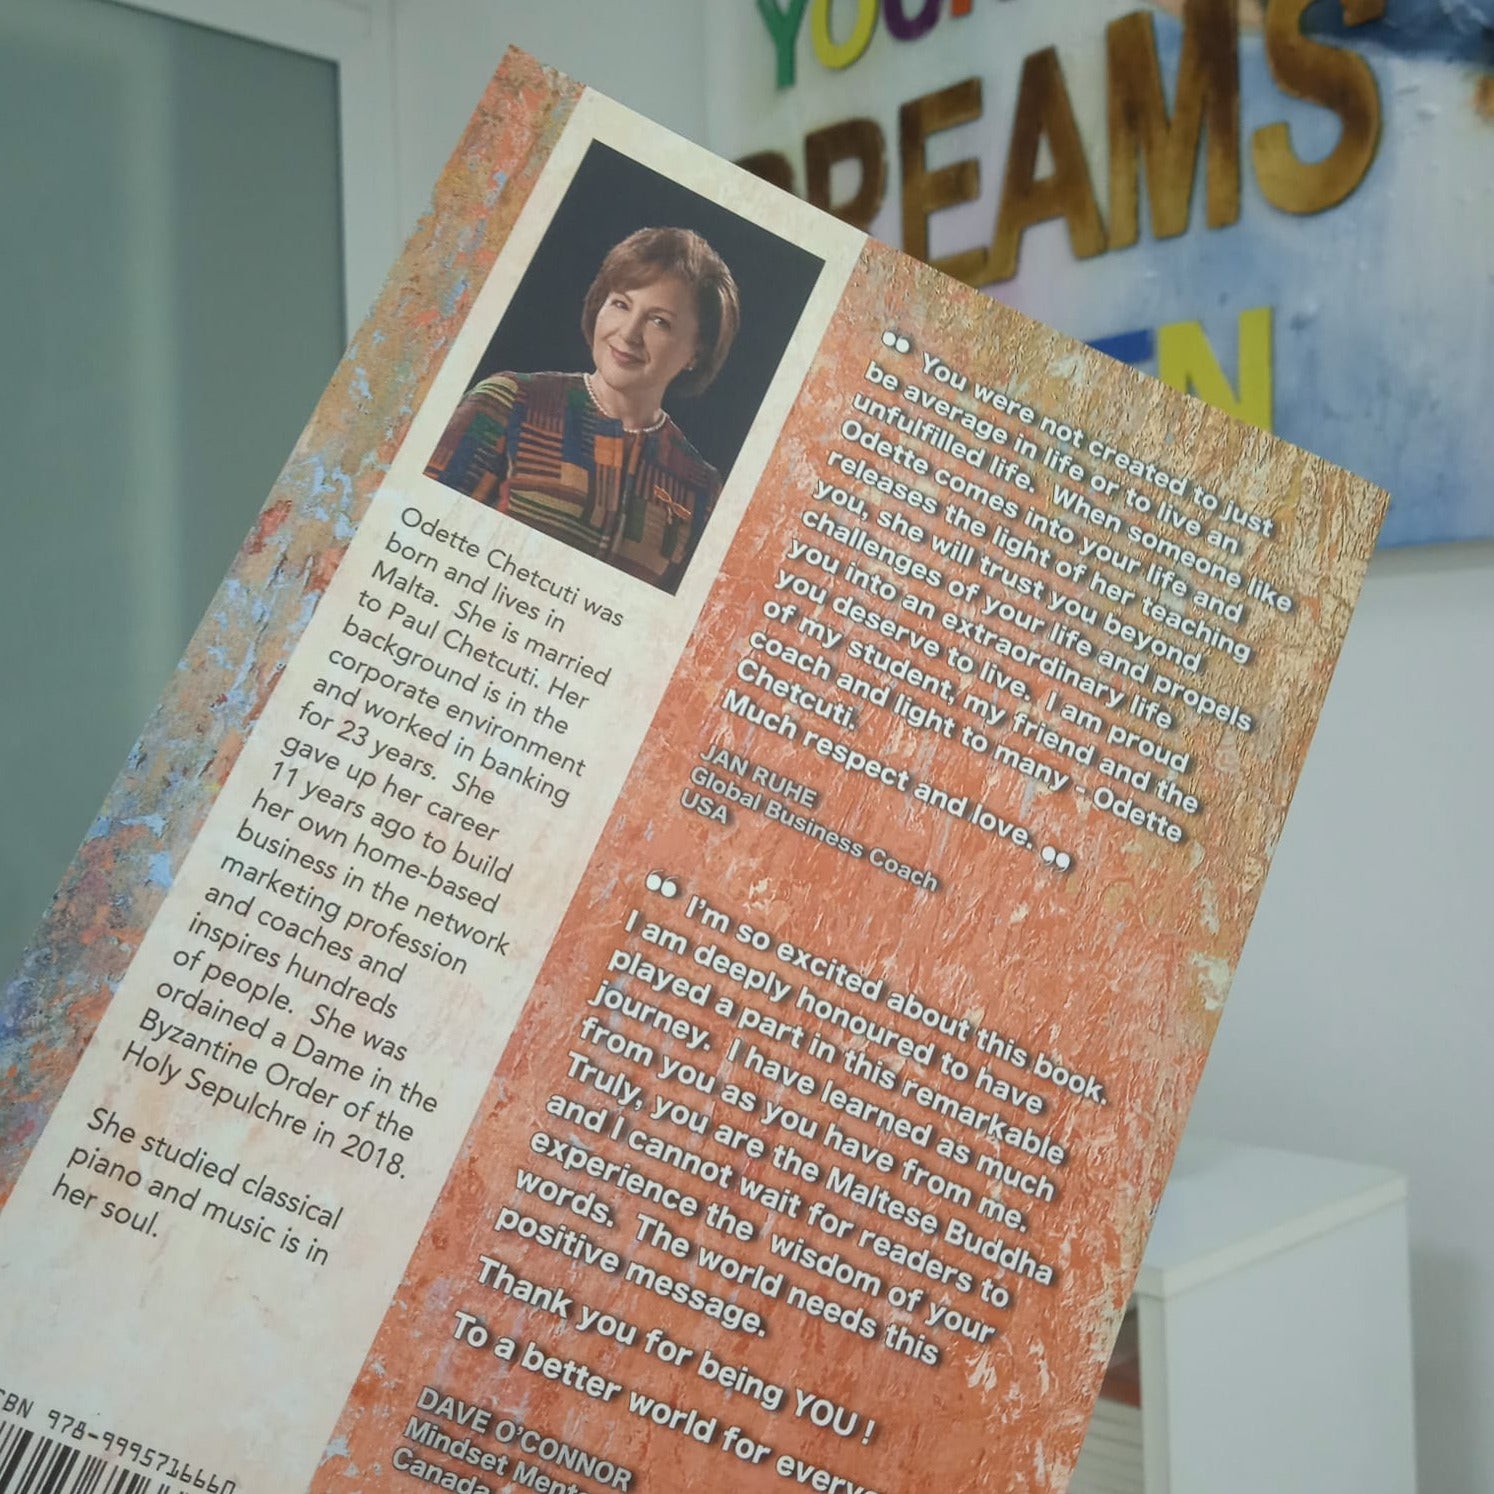 YOUR
DREAMS
Odette Chetcuti was
born and lives in
Malta. She is married
to Paul Chetcuti. Her
background is in the
corporate environment
and worked in banking
for 23 years. She
gave up her career
11 years ago to build
her own home-based
business in the network
marketing profession
and coaches and
inspires hundreds
of people. She was
ordained a Dame in the
Byzantine Order of the
Holy Sepulchre in 2018.
She studied classical
piano and music is in
her soul.
978-9995716660
“ You were not created to just
be average in life or to live an
unfulfilled life. When someone like
Odette comes into your life and
releases the light of her teaching
you, she will trust you beyond
challenges of your life and propels
you into an extraordinary life
you deserve to live. I am proud
of my student, my friend and the
coach and light to many - Odette
Chetcuti.
Much respect and love. ”
JAN RUHE
Global Business Coach
USA
“ I'm so excited about this book.
I am deeply honoured to have
played a part in this remarkable
journey. I have learned as much
from you as you have from me.
Truly, you are the Maltese Buddha
and I cannot wait for readers to
experience the wisdom of your
words. The world needs this
positive message.
Thank you for being YOU !
To a better world for
DAVE O'CONNOR
Mindset
Canada